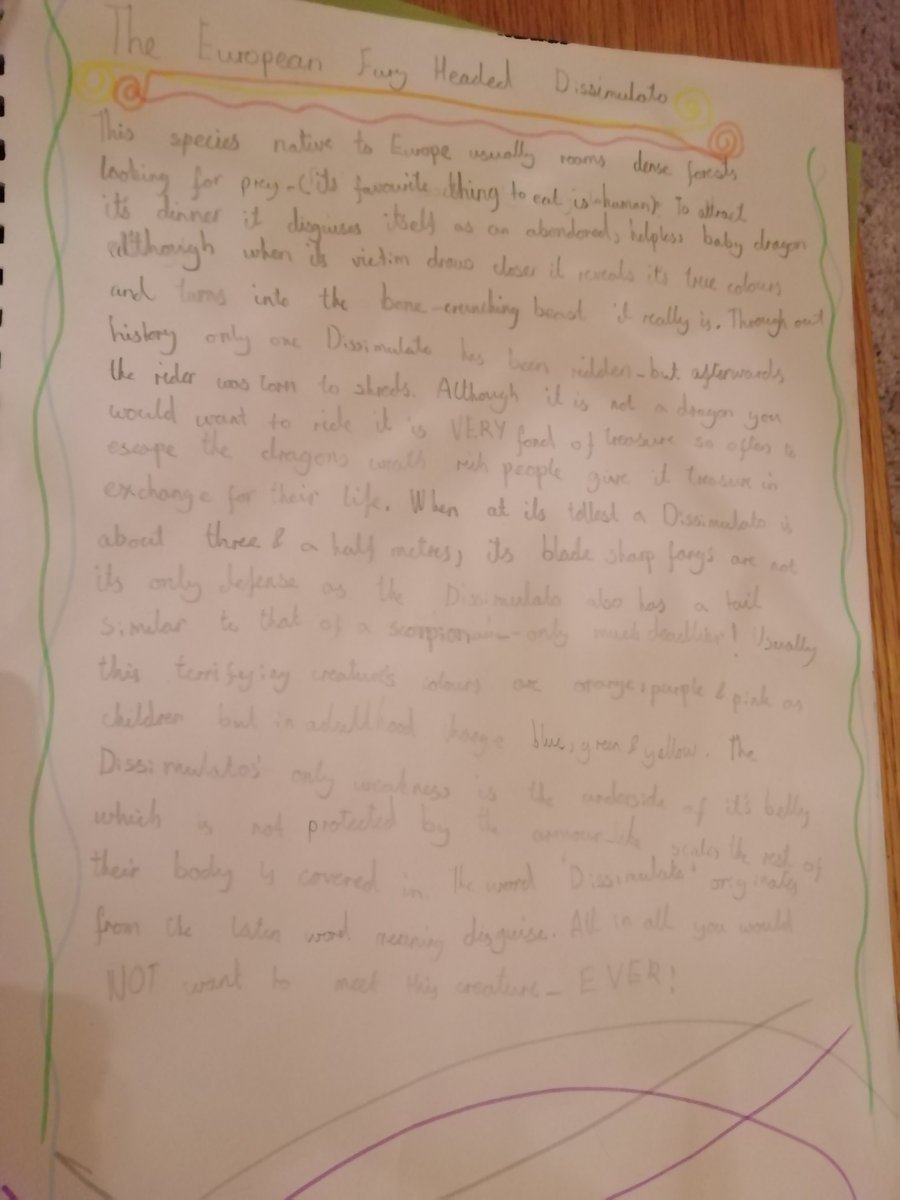 The European Fury Headed Dissimulato
This species native to Europe usually rooms dense forests
looking for prey-(its favourite thing to eat is human). To attract
its dinner it disguises itself as an abondored, helpless baby dragon
although when its victim draws closer it reveals its true colours
and turns into the bone-crunching beast it really is. Through out
history only one Dissimulato has been ridden-but afterwards
the rider was torn to shreds. Although it is not a dragon you
would want to ride it is VERY fond of treasure so often to
escape the dragons wrath rich people give it treasure in
exchange for their life. When at its tallest a Dissimulato is
about three & a half metres, its blade sharp fangs are not
its only defense as the Dissimulato also has a tail
similar to that of a scorpion - only much deadlier! Usually
this terrifying creature's colours are orange, purple & pink as
children but in adulthood change blue, green & yellow. The
Dissimulatos' only weakness is the underside of it's belly
which is not protected by the armour-like scales the rest of
their body is covered in. The word 'Dissimulato' originates
from the laten word meaning disguise. All in all you would
NOT want to meet this creature - EVER!